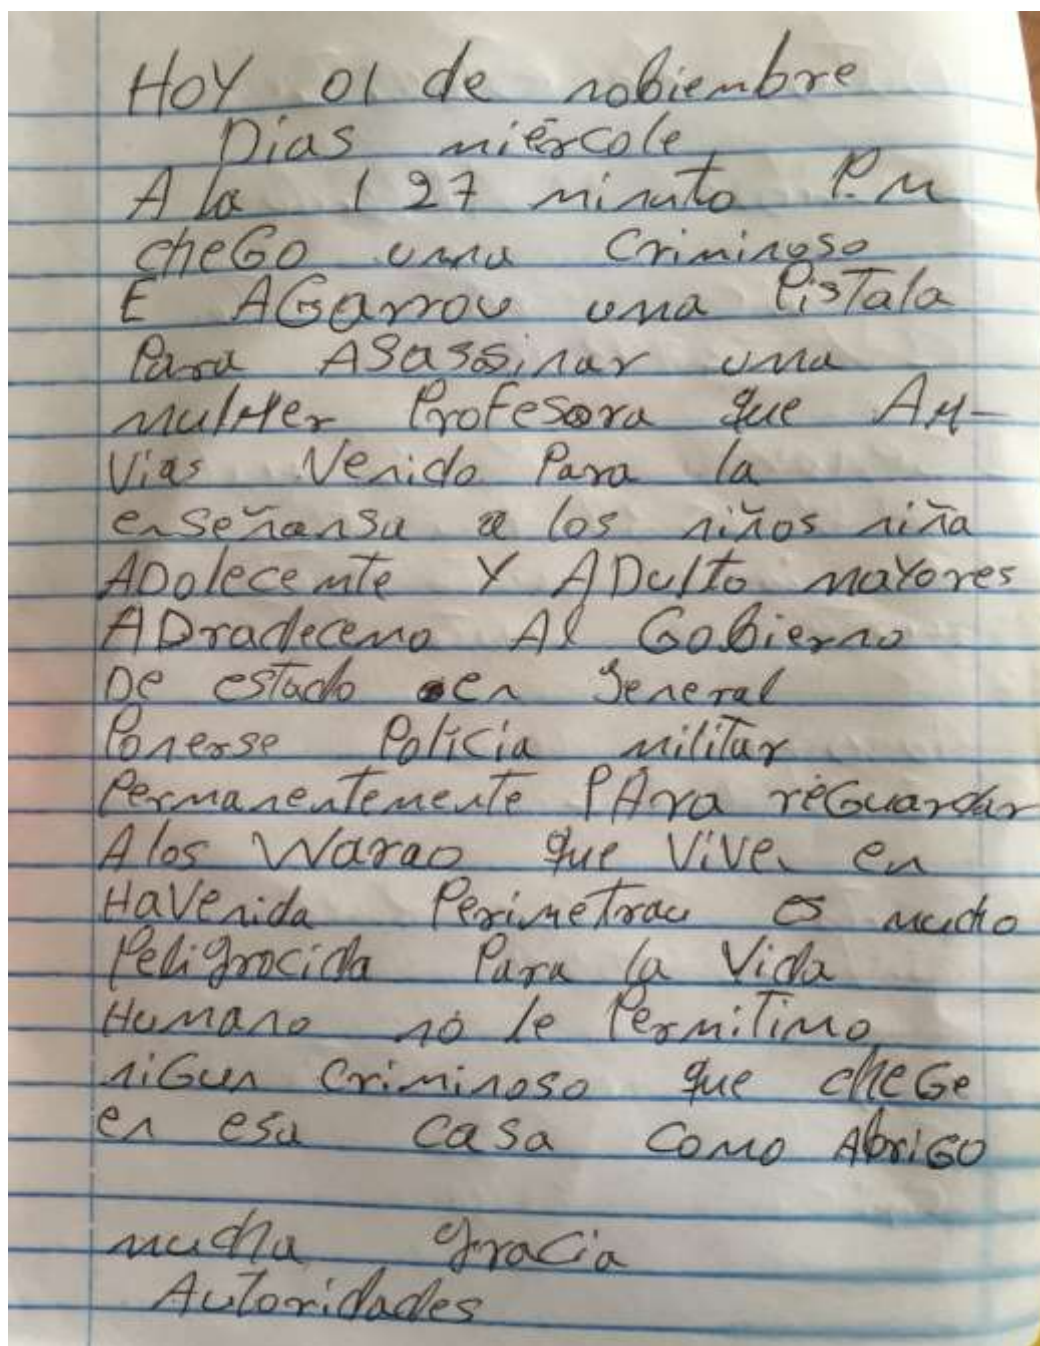 Hoy 01 de nobiembre
Dias miércole
A la 1 27 minuto P.M
cheGo uma Criminoso
E AGarrou uma PisTala
Para ASassinar uma
mulHer Profesora que AH-
Vias Venido Para la
enseñansa a los niños niña
ADolecemte Y ADulTo mayores
ADradecemo Al Gobierno
De estado en general
Ponerse Policía militar
Permanentemente PAra reGuardar
A los Warao que Viven en
HaVenida Perimetrau es mucho
Peligrocida Para la Vida
Humano no le PermiTimo
niGun criminoso que cheGe
en esa casa como AbriGo
mucha gracia
AuToridades